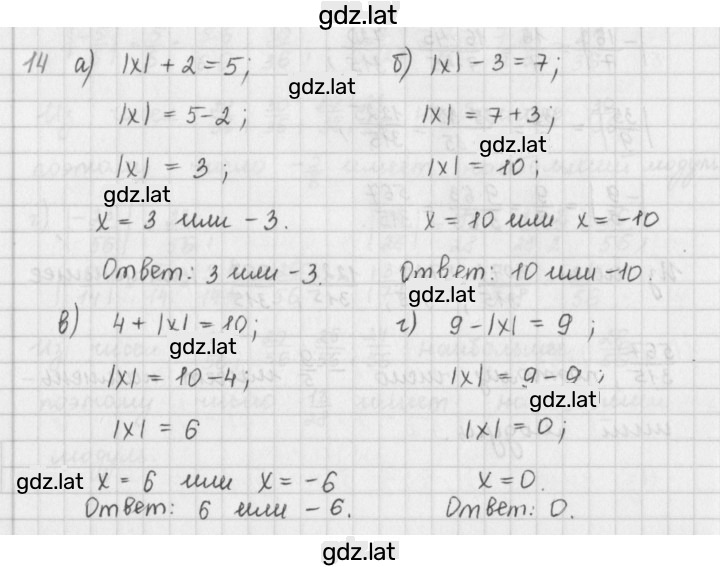 gdz.lat
14 а) |x| + 2 = 5; б) |x| - 3 = 7;
gdz.lat
|x| = 5-2; |x| = 7+3;
gdz.lat
|x| = 3; |x| = 10;
gdz.lat
x = 3 или -3. x = 10 или x = -10
Ответ: 3 или -3. Ответ: 10 или -10.
gdz.lat
в) 4 + |x| = 10; г) 9 - |x| = 9;
gdz.lat
|x| = 10-4; |x| = 9 - 9;
gdz.lat
|x| = 6 |x| = 0;
gdz.lat x = 6 или x = -6 x = 0.
Ответ: 6 или -6. Ответ: 0.
gdz.lat